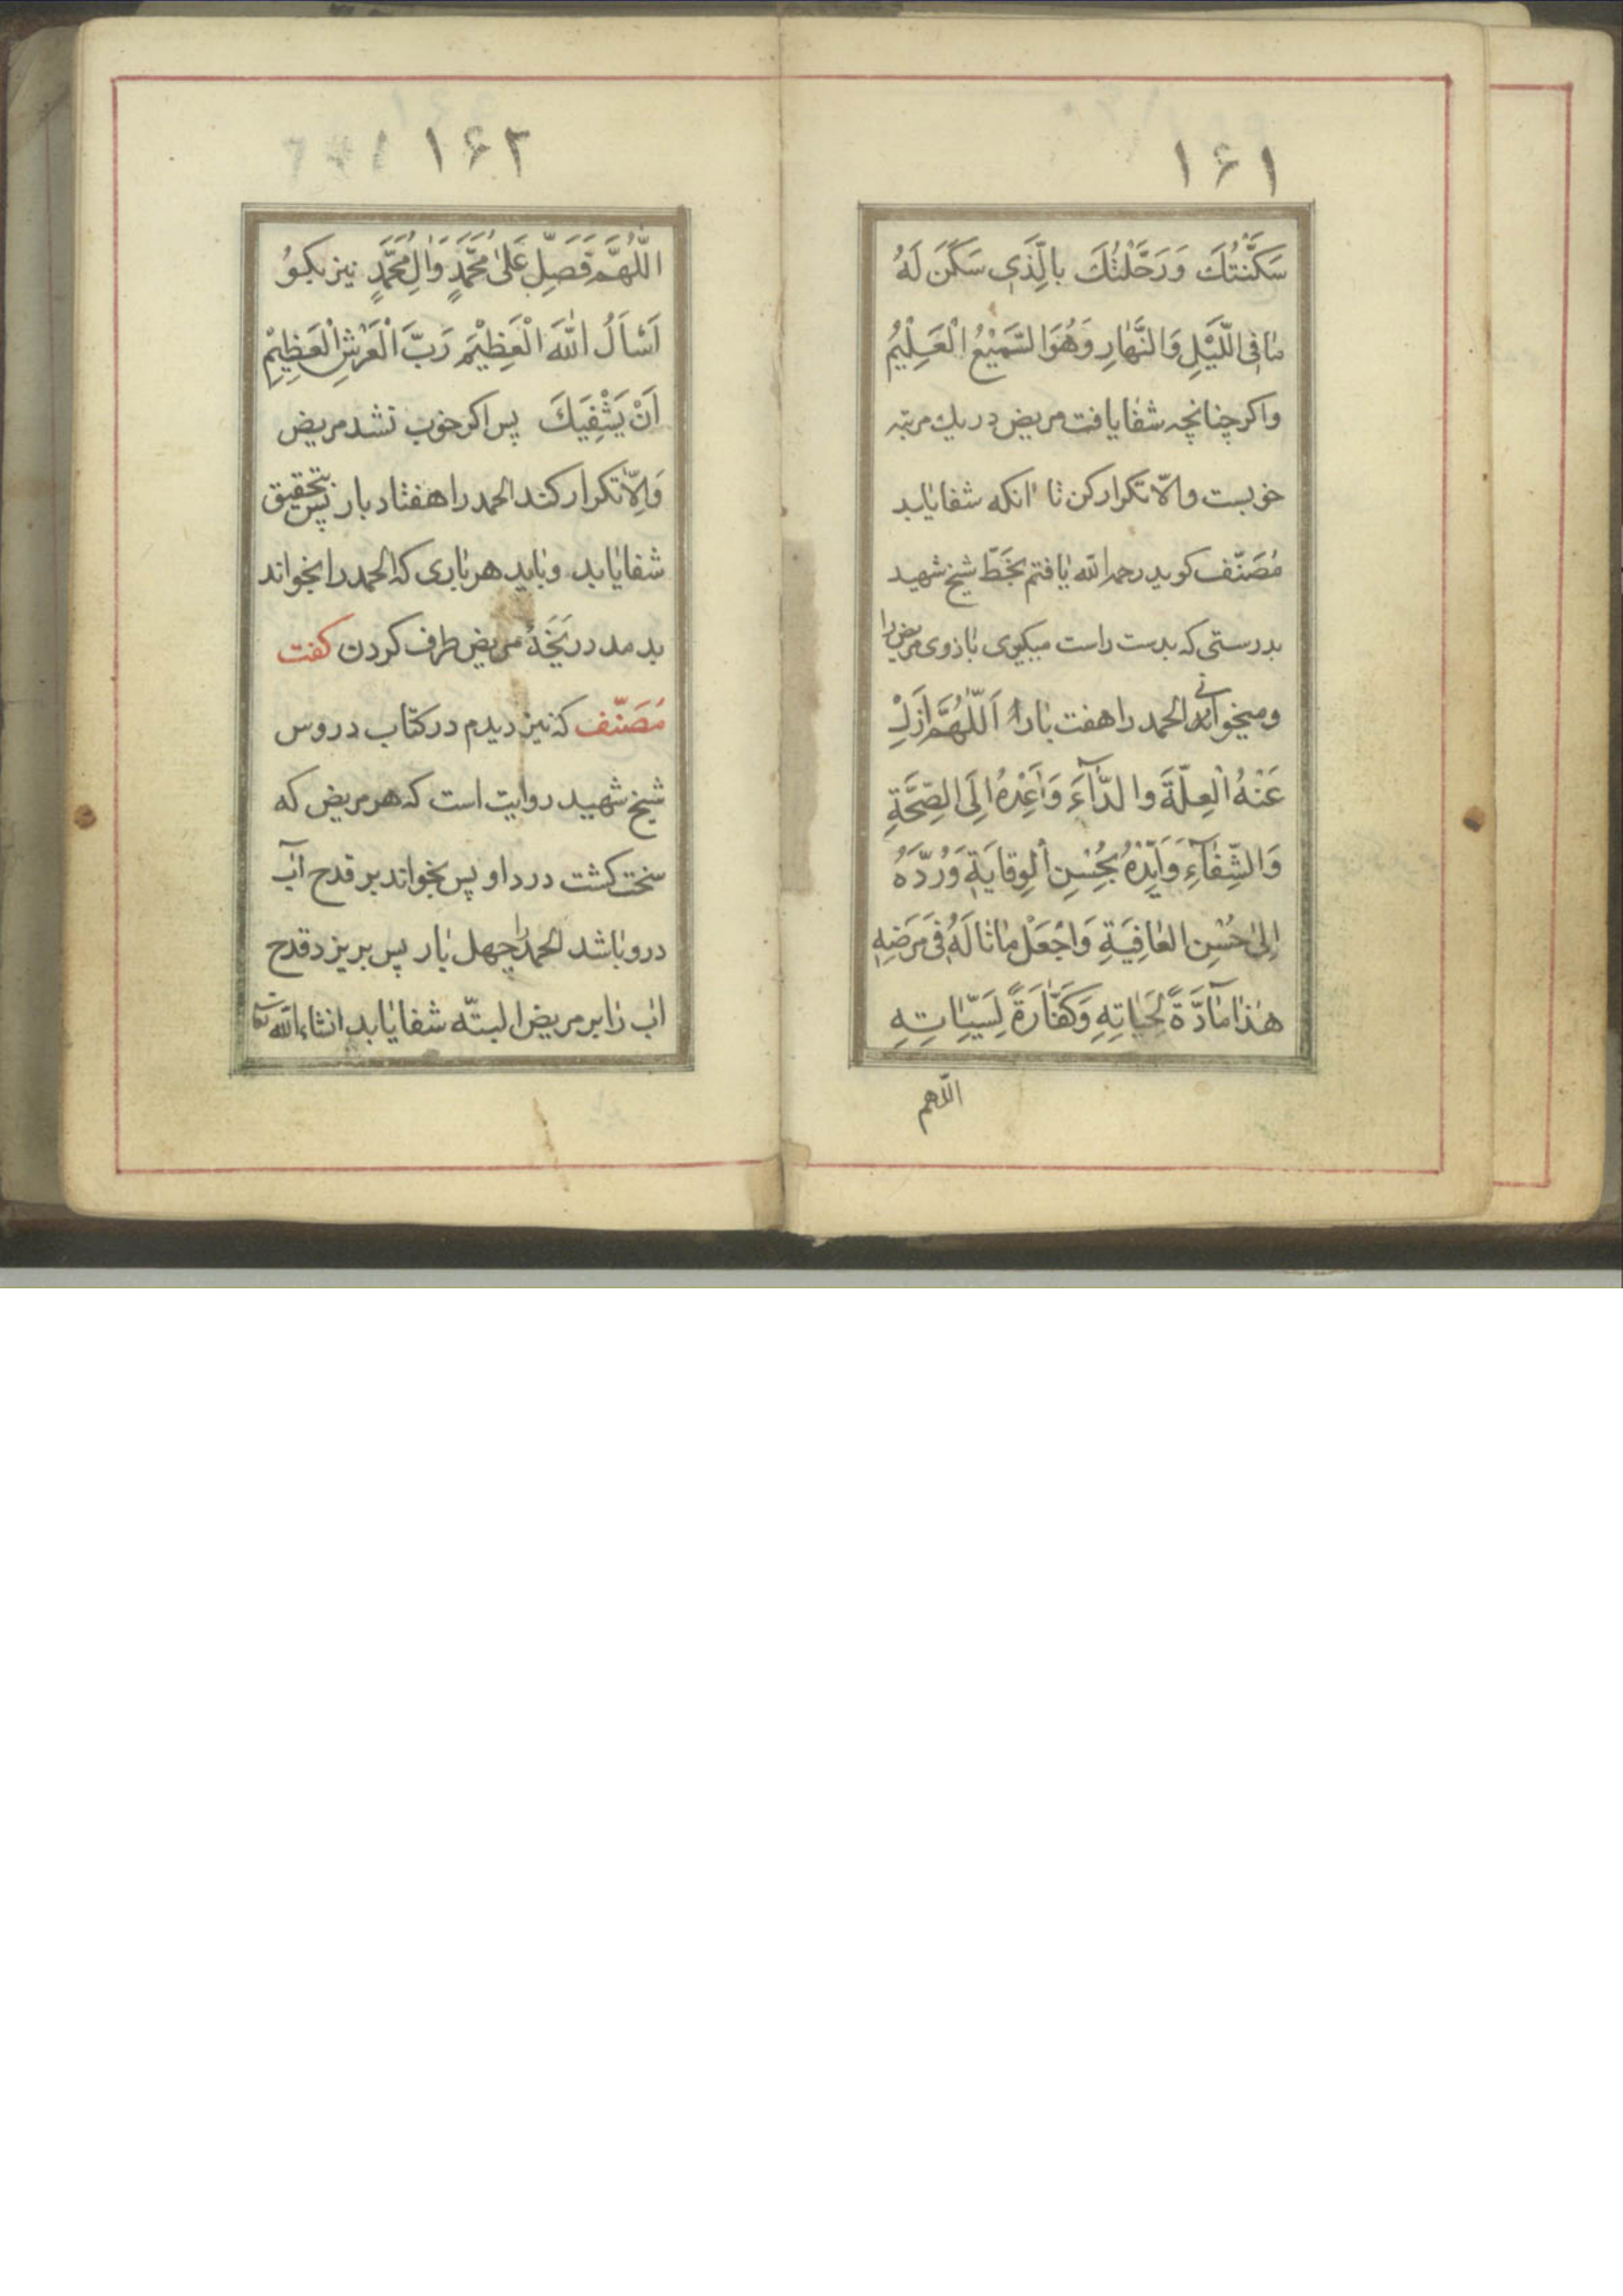 ۱۶۱
سَكَّنْتُكَ وَرَحَّلْتُكَ بِالَّذِي سَكَنَ لَهُ
مٰا فِي اللَّيْلِ وَالنَّهٰارِ وَهُوَ السَّمِيْعُ الْعَلِيْمُ
واكر چنانچه شفا يافت مريض در يك مرتبه
خوبست والّا تكرار كن تا انكه شفا يابد
مُصَنّف كويد رحمه الله يافتم بخَطّ شيخ شهيد
بدرستى كه بدست راست ميكيرى بازوى مريض را
و ميخوانى الحمد را هفت بار اَللّٰهُمَّ اَزِلْ
عَنْهُ الْعِلَّةَ وَالدّٰآءَ وَاَعِدْهُ اِلَى الصِّحَّةِ
وَالشِّفٰآءِ وَاَيِّدْهُ بِحُسْنِ الْوِقايَةِ وَرُدَّهُ
اِلىٰ حُسْنِ الْعٰافِيَةِ وَاجْعَلْ مٰا نٰالَهُ فِي مَرَضِهِ
هٰذا مٰآدَّةً لِحَيٰاتِهِ وَكَفّٰارَةً لِسَيِّئٰاتِهِ
اللّهم
۱۶۲
اَللّٰهُمَّ فَصَلِّ عَلىٰ مُحَمَّدٍ وَاٰلِ مُحَمَّدٍ نيز بكو
اَسْاَلُ اللّٰهَ الْعَظِيْمَ رَبَّ الْعَرْشِ الْعَظِيْمِ
اَنْ يَشْفِيَكَ پس اكر خوب نشد مريض
وَاِلّا تكرار كند الحمد را هفتاد بار پس بتحقيق
شفا يابد و بايد هر بارى كه الحمد را بخواند
بدمد در يَخَهٔ مريض طرف كردن كفت
مُصَنّف كه نيز ديدم در كتاب دروس
شيخ شهيد روايت است كه هر مريض كه
سخت كشت درد او پس بخواند بر قدح آب
درو باشد الحمد را چهل بار پس بريزد قدح
اب را بر مريض البتّه شفا يابد انشاءالله تعا